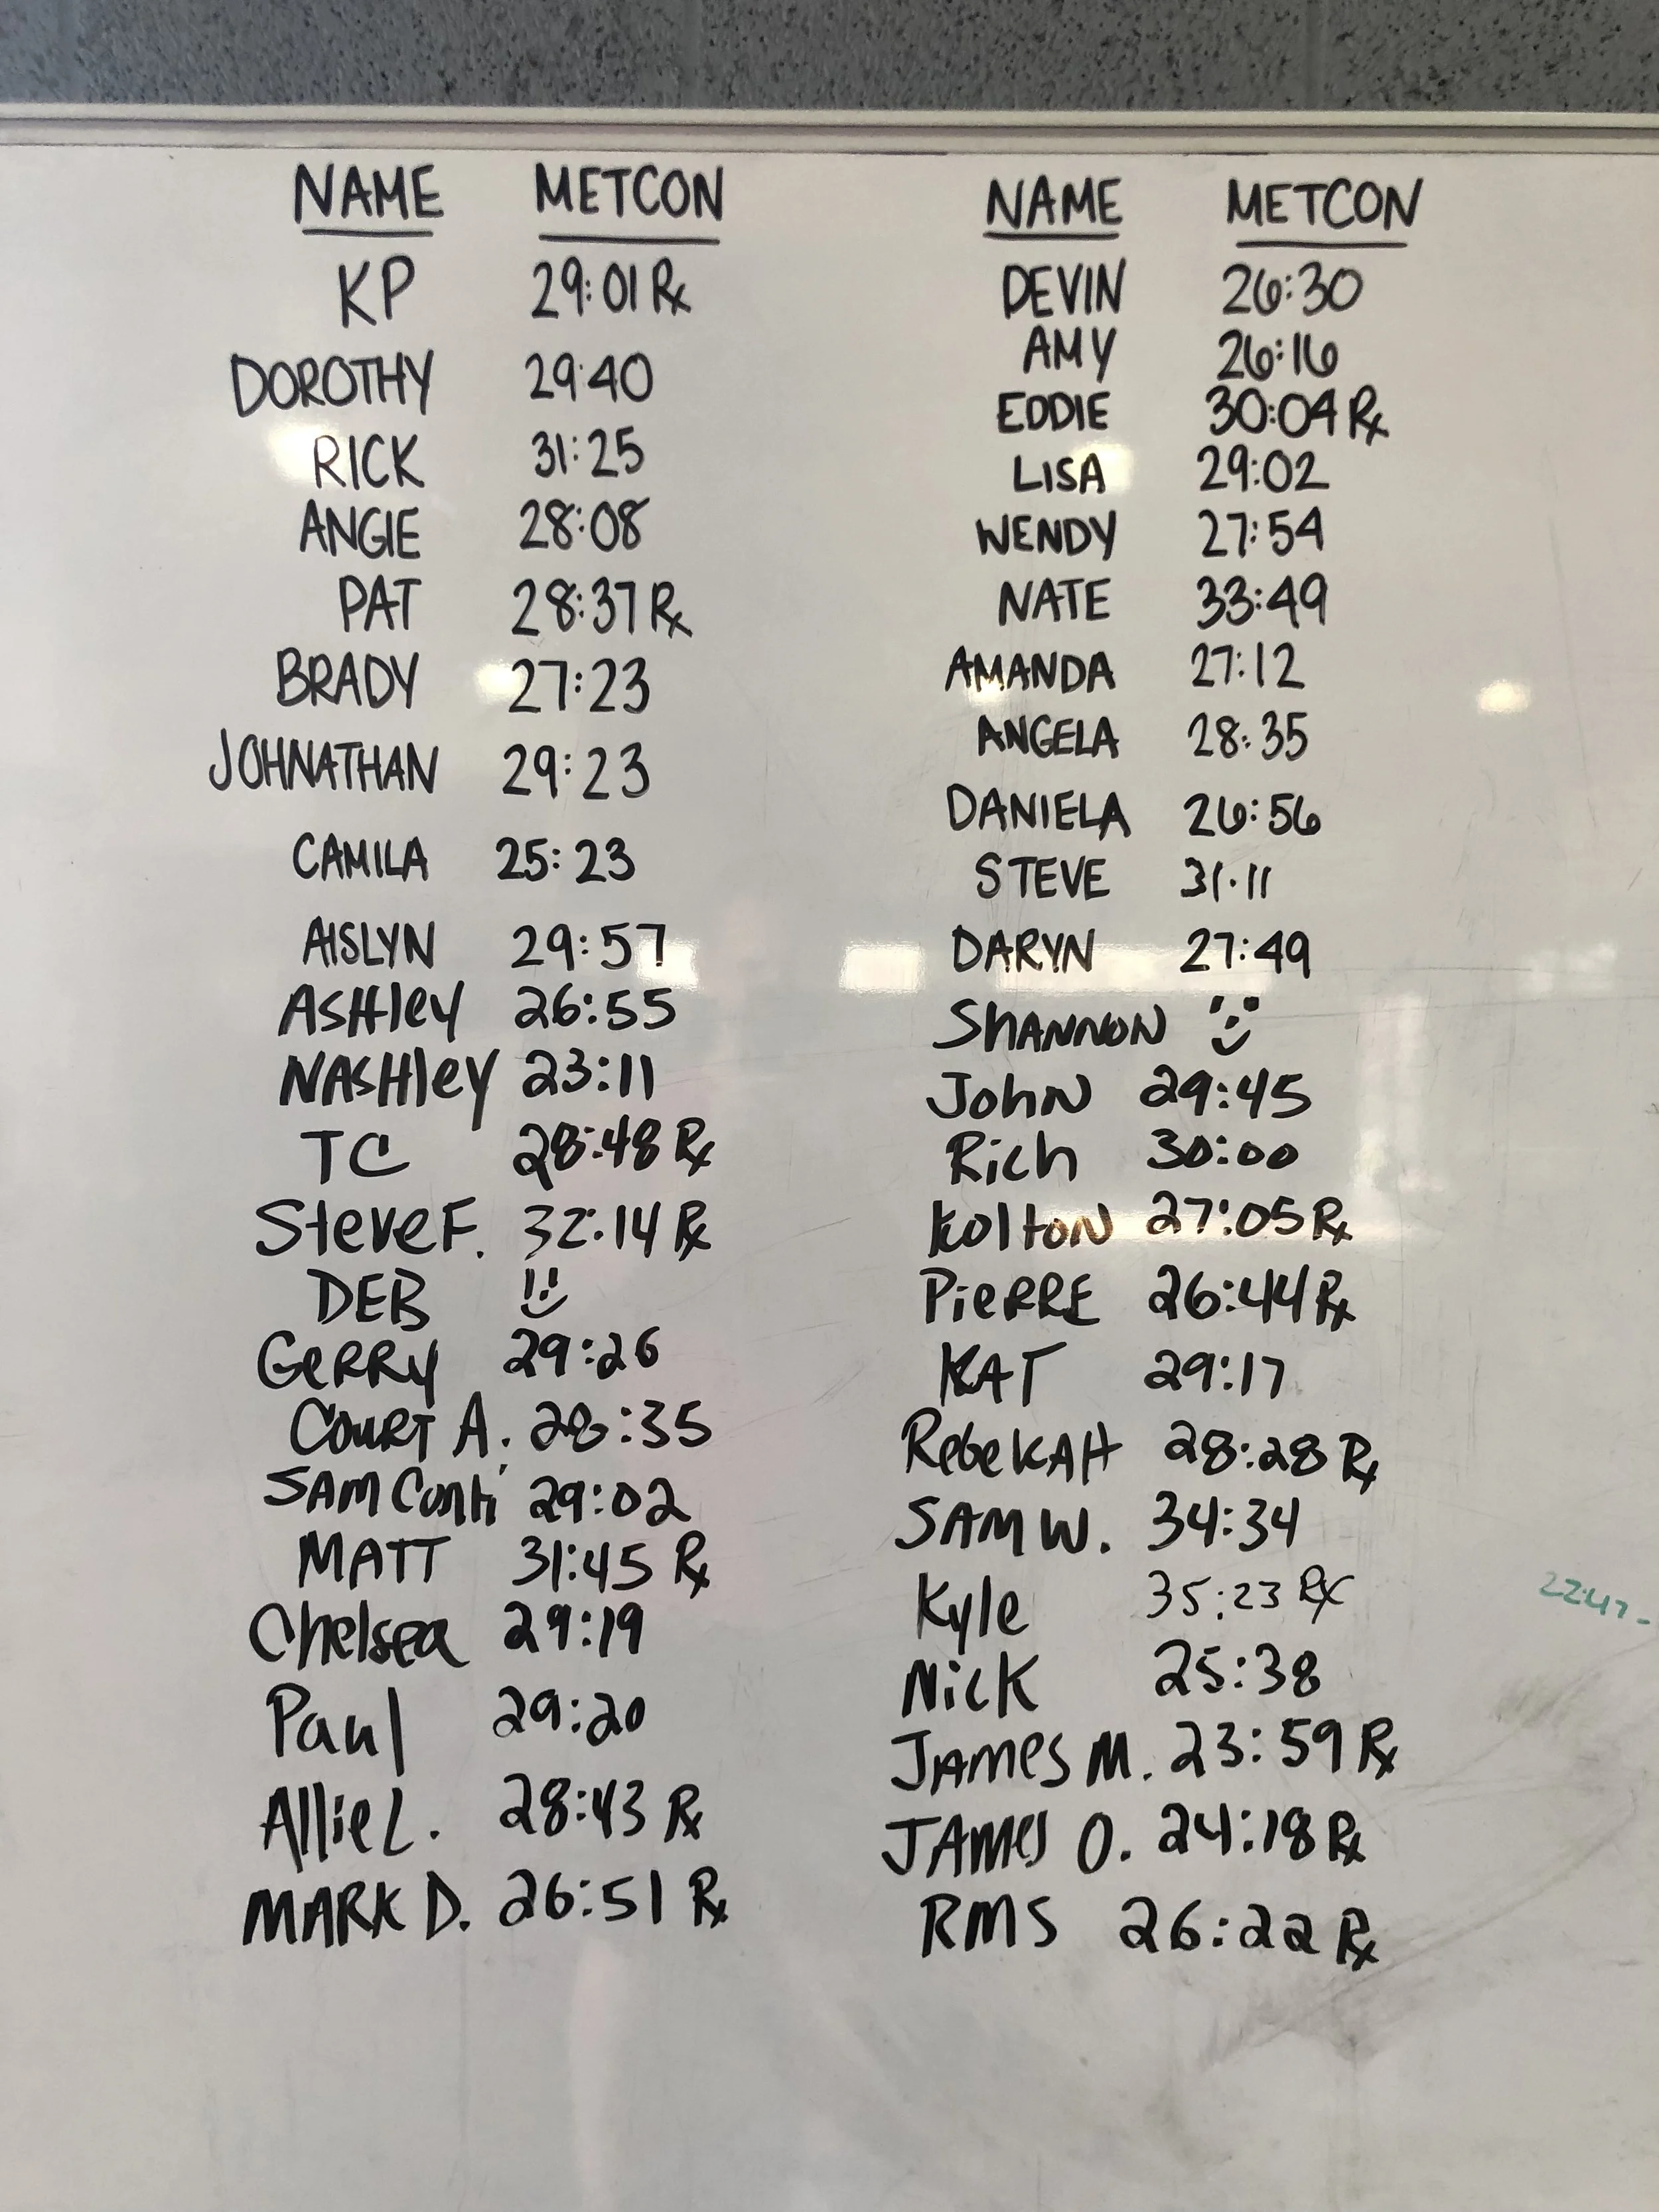 NAME METCON
KP 29:01 Rx
DOROTHY 29:40
RICK 31:25
ANGIE 28:08
PAT 28:37 Rx
BRADY 27:23
JOHNATHAN 29:23
CAMILA 25:23
AISLYN 29:57
ASHley 26:55
NASHley 23:11
TC 28:48 Rx
Steve F. 32:14 Rx
DEB
GeRRy 29:26
COURT A. 28:35
SAM Conti 29:02
MATT 31:45 Rx
Chelsea 29:19
Paul 29:20
Allie L. 28:43 Rx
MARK D. 26:51 Rx
NAME METCON
DEVIN 26:30
AMY 26:16
EDDIE 30:04 Rx
LISA 29:02
WENDY 27:54
NATE 33:49
AMANDA 27:12
ANGELA 28:35
DANIELA 26:56
STEVE 31:11
DARYN 27:49
ShANNON
John 29:45
Rich 30:00
Kolton 27:05 Rx
PieRRE 26:44 Rx
KAT 29:17
RebeKAH 28:28 Rx
SAM W. 34:34
Kyle 35:23 Rx
Nick 25:38
JAMes M. 23:59 Rx
JAMes O. 24:18 Rx
RMS 26:22 Rx
22:47-